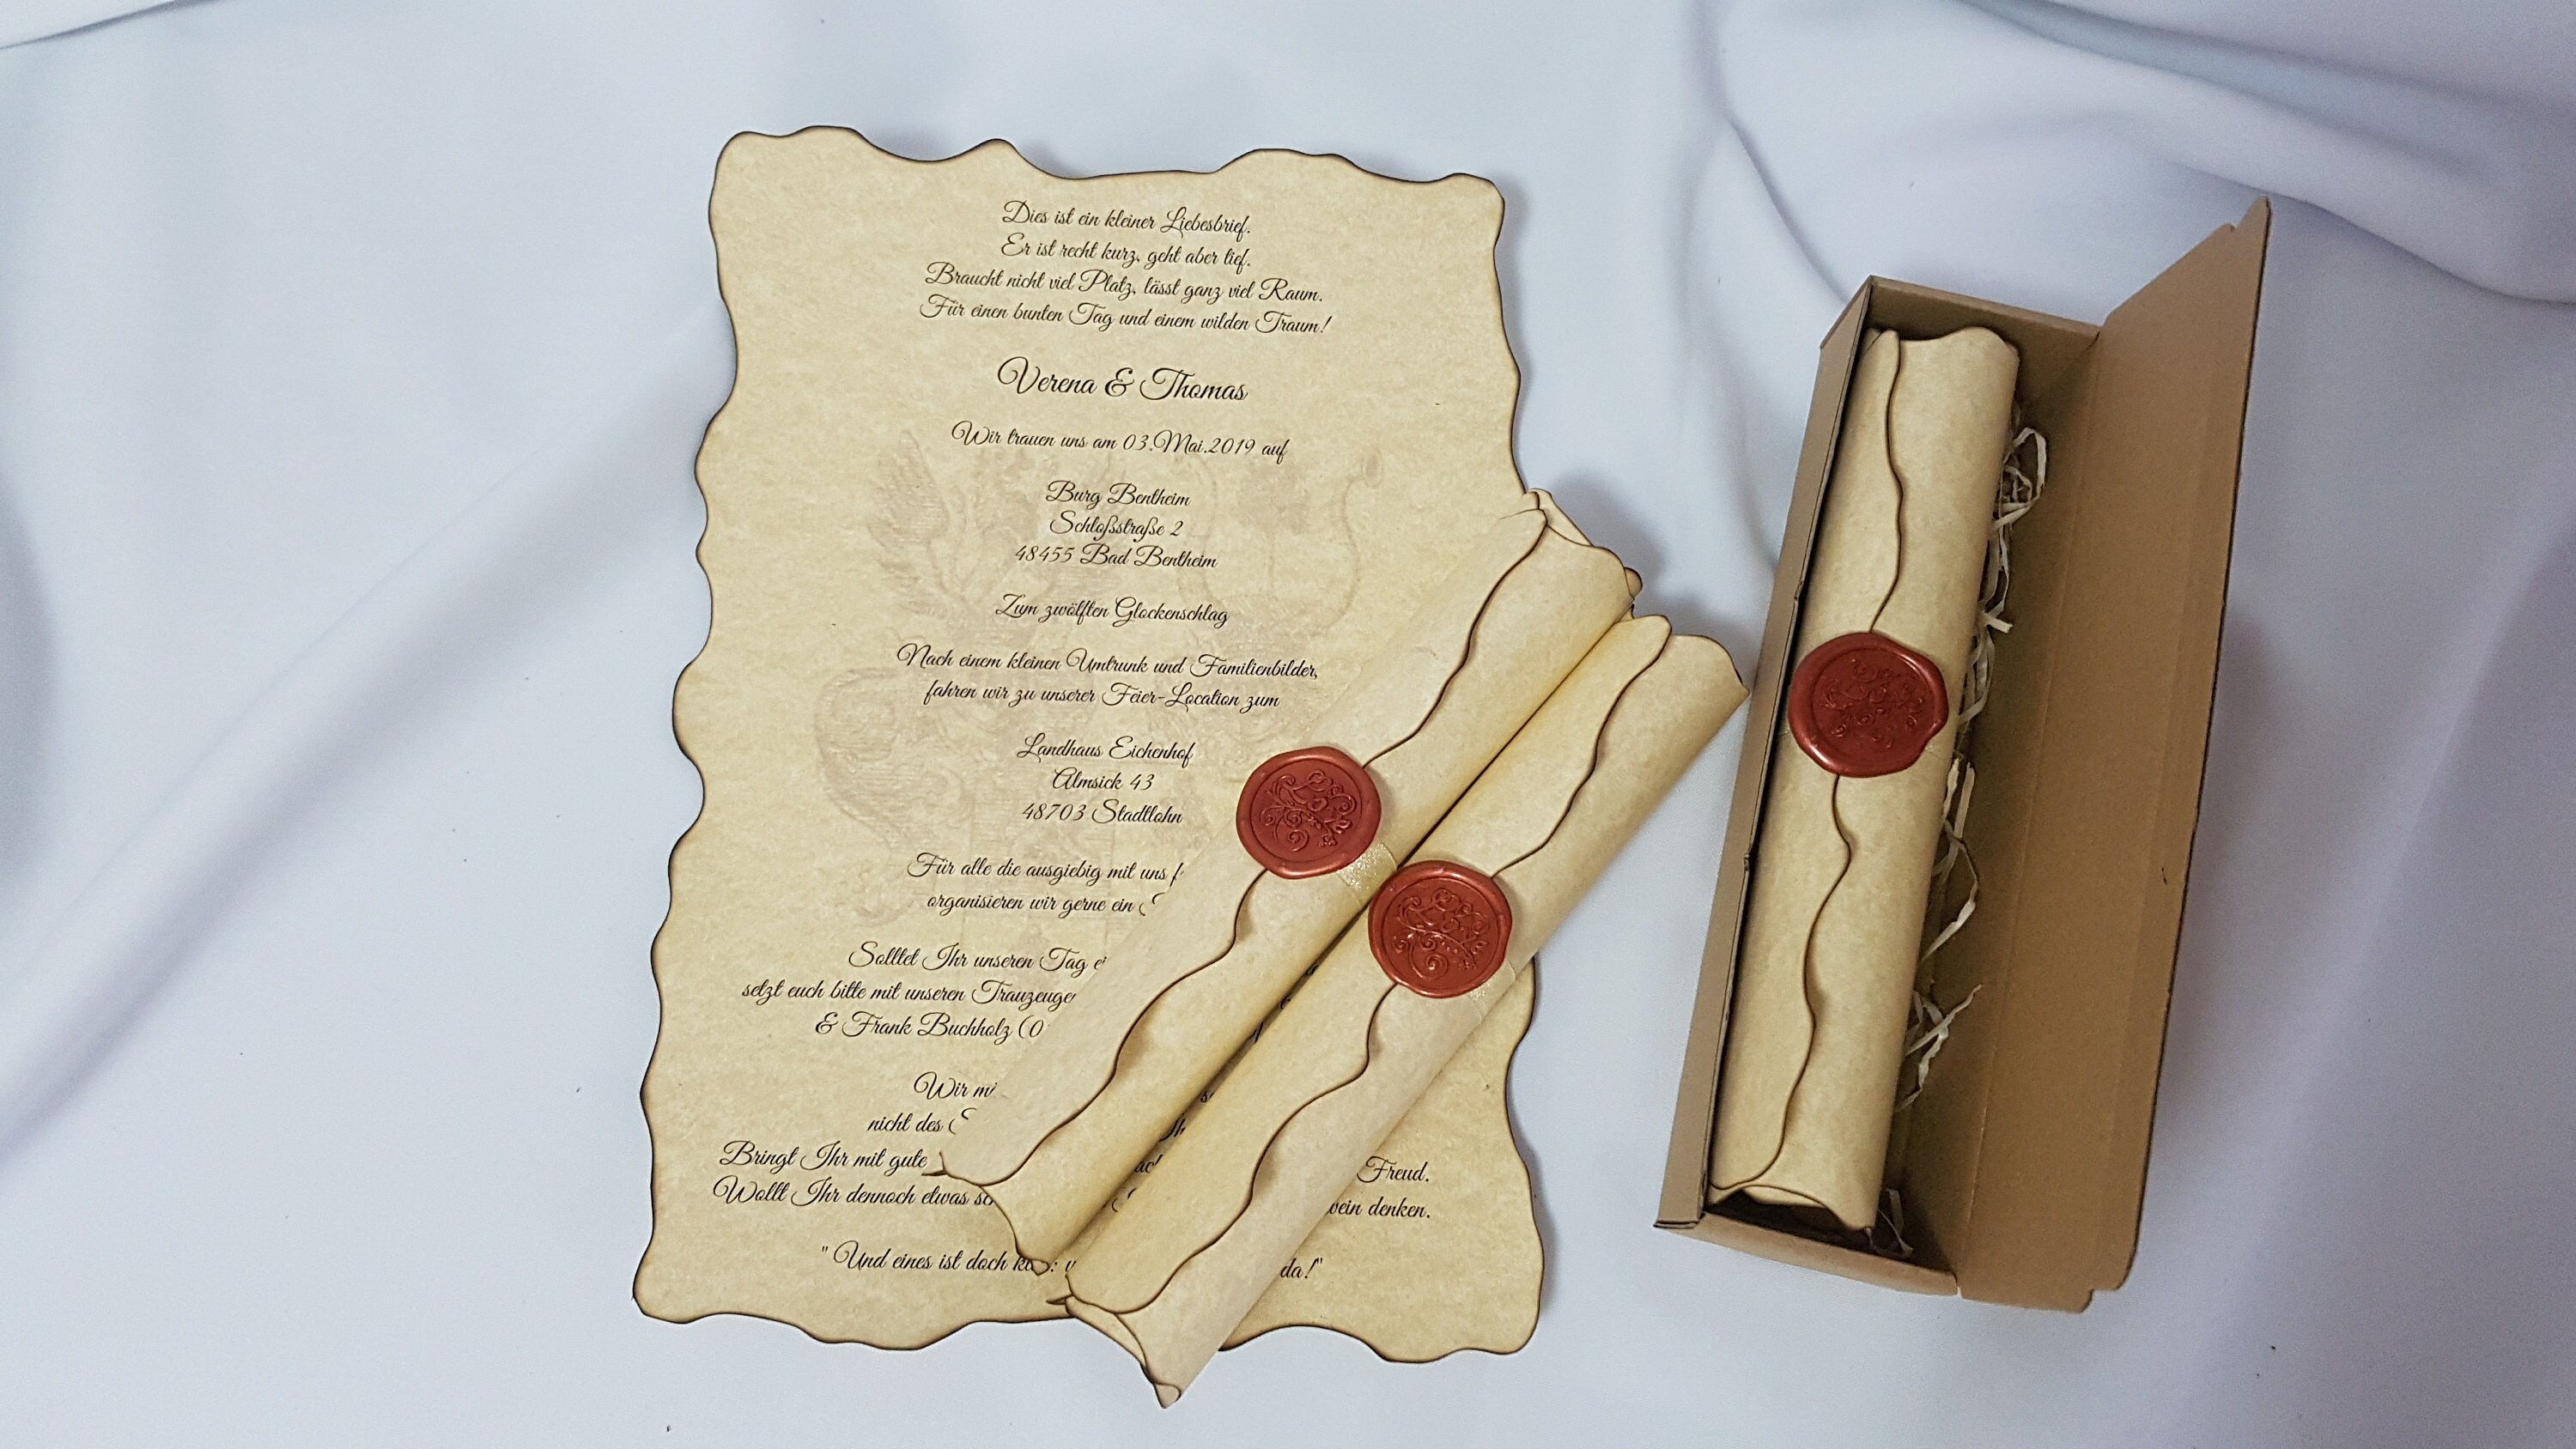 Dies ist ein kleiner Liebesbrief.
Er ist recht kurz, geht aber tief.
Braucht nicht viel Platz, lässt ganz viel Raum.
Für einen bunten Tag und einem wilden Traum!
Verena & Thomas
Wir trauen uns am 03.Mai.2019 auf
Burg Bentheim
Schloßstraße 2
48455 Bad Bentheim
Zum zwölften Glockenschlag
Nach einem kleinen Umtrunk und Familienbilder,
fahren wir zu unserer Feier-Location zum
Landhaus Eichenhof
Almsick 43
48703 Stadtlohn
Für alle die ausgiebig mit uns
organisieren wir gerne ein
Solltet Ihr unseren Tag
setzt euch bitte mit unseren
& Frank Buchholz (0
Wir
nicht des
Bringt Ihr mit gute Freud.
Wollt Ihr dennoch etwas denken.
" Und eines ist doch da!"